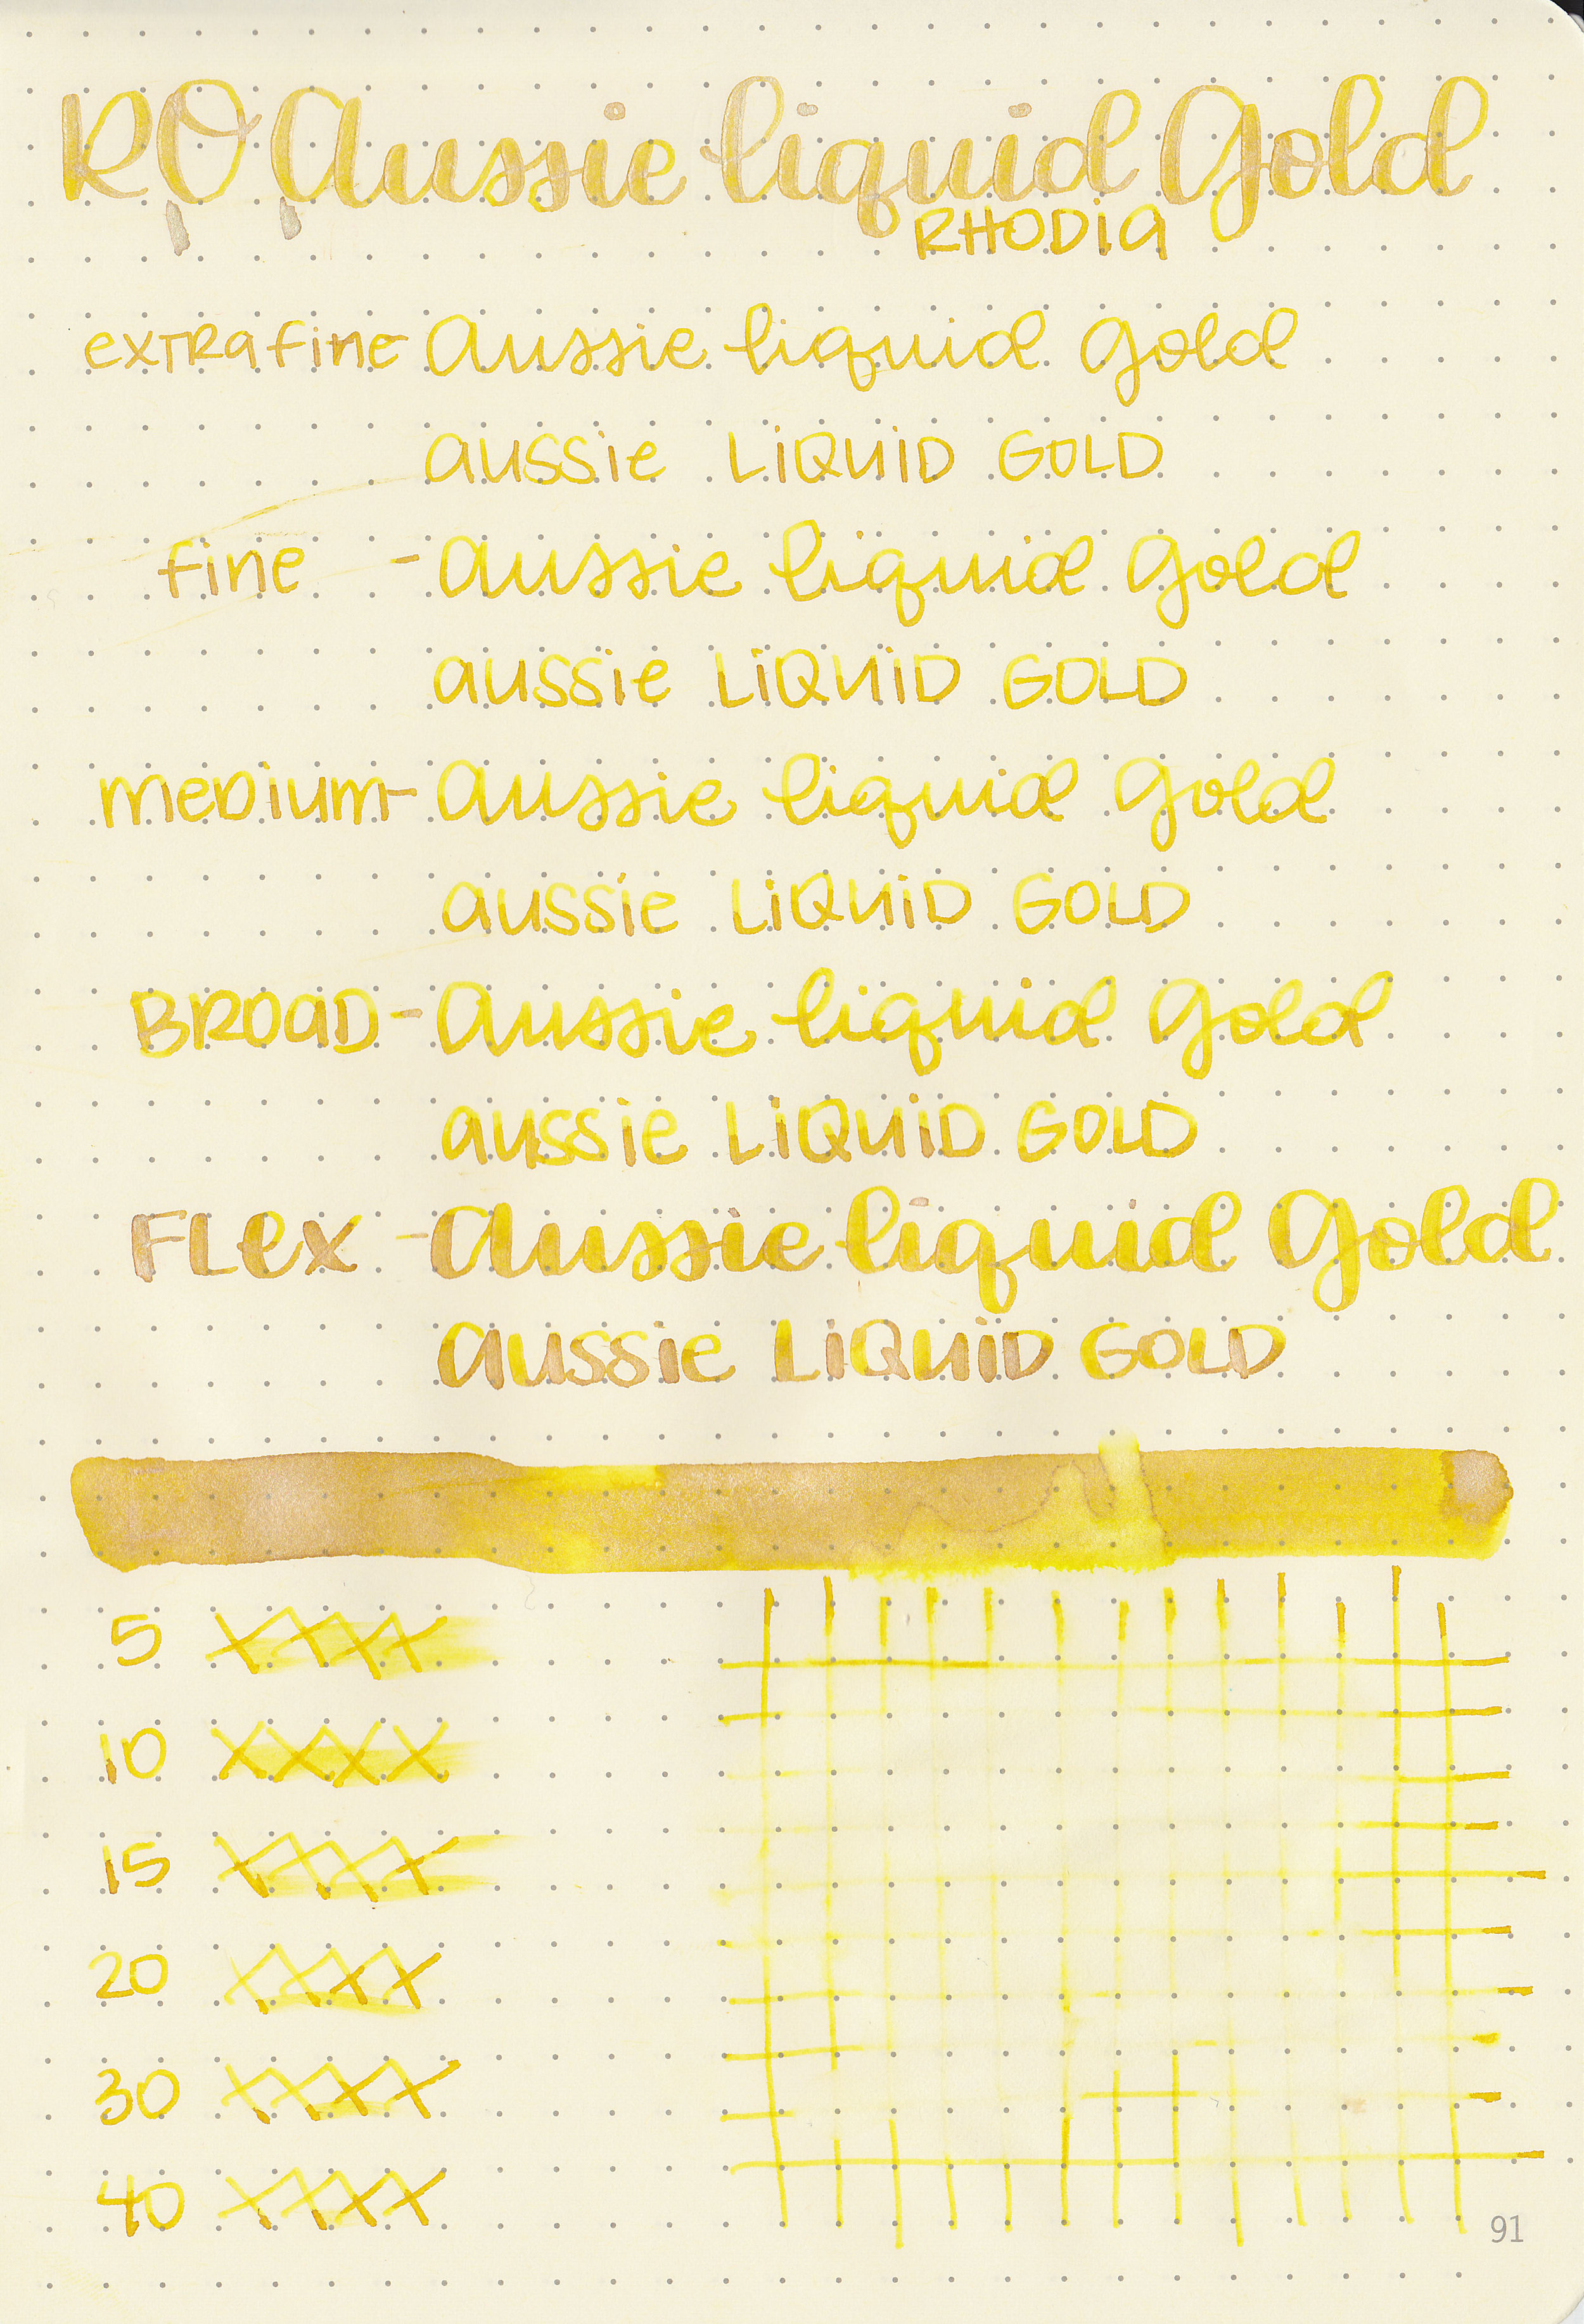 RO Aussie liquid Gold
RHODIA
extra fine - Aussie liquid gold
aussie LIQUID GOLD
fine - Aussie liquid gold
aussie LIQUID GOLD
medium - Aussie liquid gold
aussie LIQUID GOLD
BROAD - Aussie liquid gold
aussie LIQUID GOLD
FLEX - Aussie liquid Gold
aussie LIQUID GOLD
5
10
15
20
30
40
91